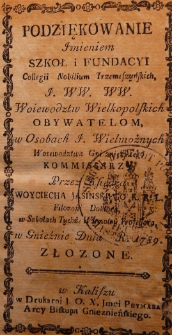 PODZIĘKOWANIE
Imieniem
SZKOŁ i FUNDACYI
Collegii Nobilium Trzemeszyńskich,
J. WW. WW.
Woiewodztw Wielkopolſkich
OBYWATELOM,
w Osobach J. Wielmożnych
Woiewodztwa
KOMMISSARZY
Przez
WOYCIECHA JASINSKIEGO K. R. L.
Filozof. Dokt.
w Szkołach Tychże Wymowy Profeſſora,
w Gnieźnie Dnia R. 1789.
ZŁOZONE.
w Kaliſzu
w Drukarni J. O. X. Jmci PRYMASA
Arcy Biskupa Gnieznieńskiego.